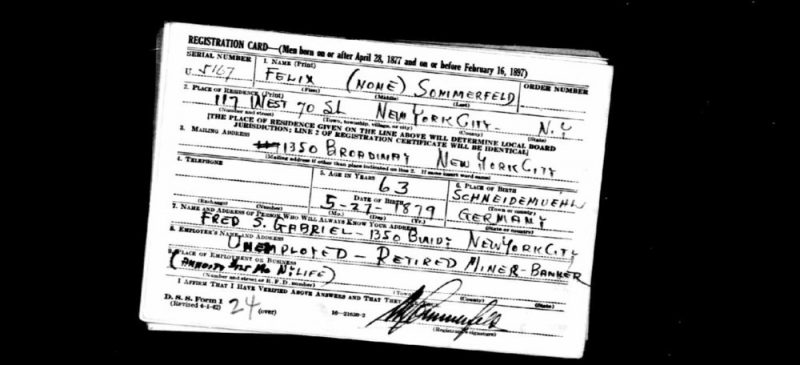 REGISTRATION CARD—(Men born on or after April 28, 1877 and on or before February 16, 1897)
SERIAL NUMBER 1. NAME (Print) ORDER NUMBER
U 5167 FELIX (NONE) SOMMERFELD
(First) (Middle) (Last)
2. PLACE OF RESIDENCE (Print)
117 WEST 70 St. NEW YORK CITY N.Y
(Number and street) (Town, township, village, or city) (County) (State)
[THE PLACE OF RESIDENCE GIVEN ON THE LINE ABOVE WILL DETERMINE LOCAL BOARD
JURISDICTION; LINE 2 OF REGISTRATION CERTIFICATE WILL BE IDENTICAL]
3. MAILING ADDRESS
1350 BROADWAY NEW YORK CITY
(Mailing address if other than place indicated on line 2. If same insert word same)
4. TELEPHONE 5. AGE IN YEARS 6. PLACE OF BIRTH
63 SCHNEIDEMUEHL
DATE OF BIRTH (Town or county)
5-27-1879 GERMANY
(Exchange) (Number) (Mo.) (Day) (Yr.) (State or country)
7. NAME AND ADDRESS OF PERSON WHO WILL ALWAYS KNOW YOUR ADDRESS
FRED S. GABRIEL - 1350 NEW YORK CITY
8. EMPLOYER'S NAME AND ADDRESS
UNEMPLOYED - RETIRED MINER-BANKER
9. PLACE OF EMPLOYMENT OR BUSINESS
(Number and street or R. F. D. number) (County) (State)
I AFFIRM THAT I HAVE VERIFIED ABOVE ANSWERS AND THAT THEY
D. S. S. Form 1
(Revised 4-1-42) 24 (over) 16—21630-2 (Registrant's signature)